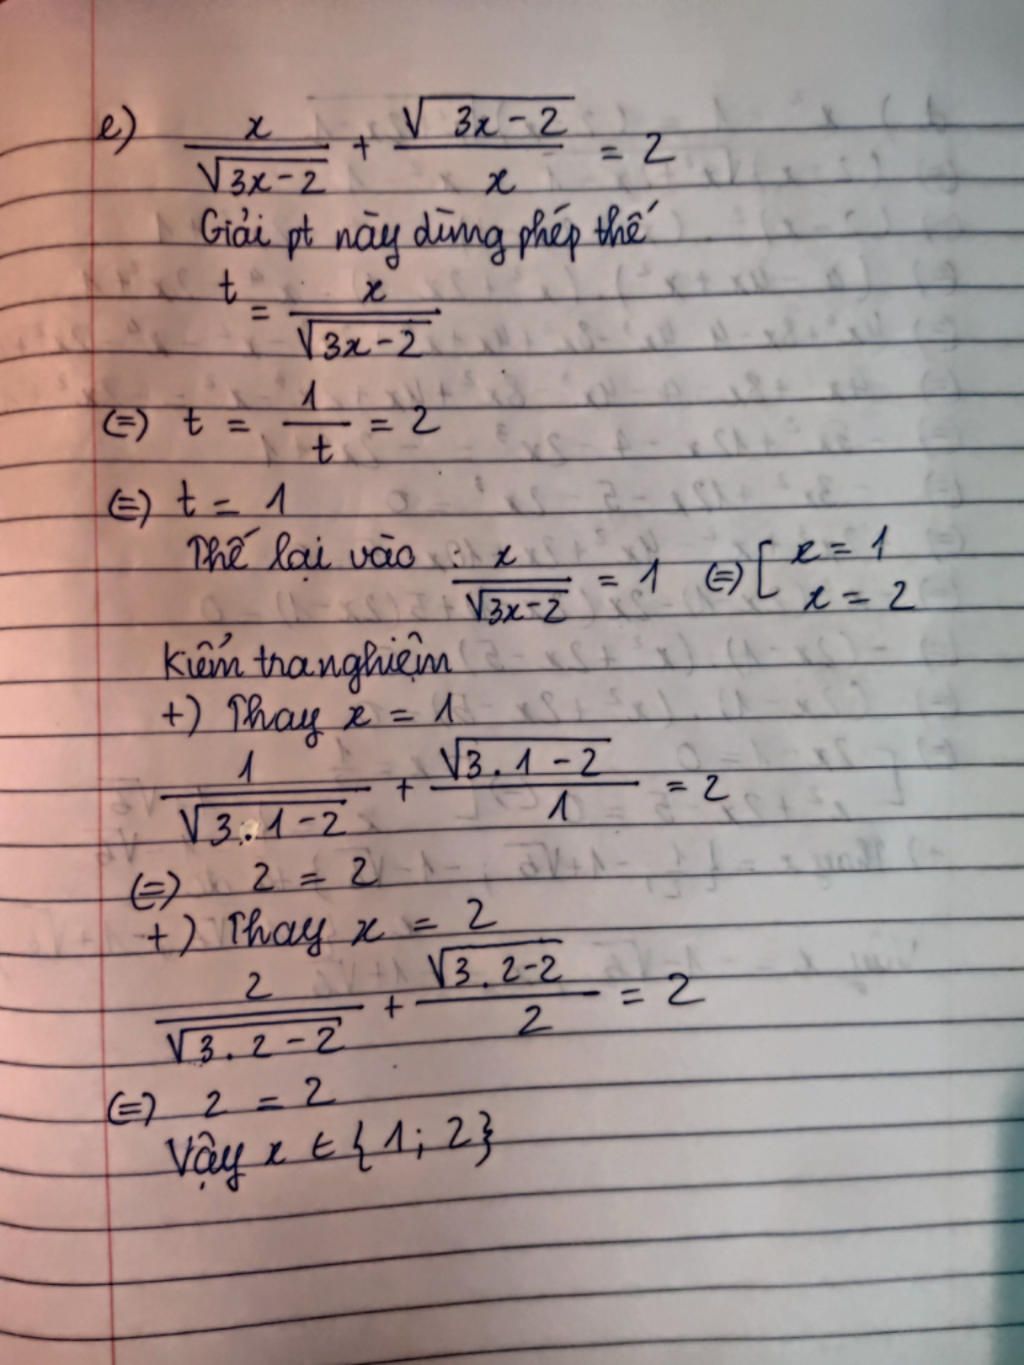 e) x/√(3x-2) + √(3x-2)/x = 2
Giải pt này dùng phép thế
t = x/√(3x-2)
(=) t = 1/t = 2
(=) t = 1
Thế lại vào : x/√(3x-2) = 1 (=) [ x = 1
x = 2
Kiểm tra nghiệm
+) Thay x = 1
1/√(3.1-2) + √(3.1-2)/1 = 2
(=) 2 = 2
+) Thay x = 2
2/√(3.2-2) + √(3.2-2)/2 = 2
(=) 2 = 2
Vậy x ∈ {1; 2}